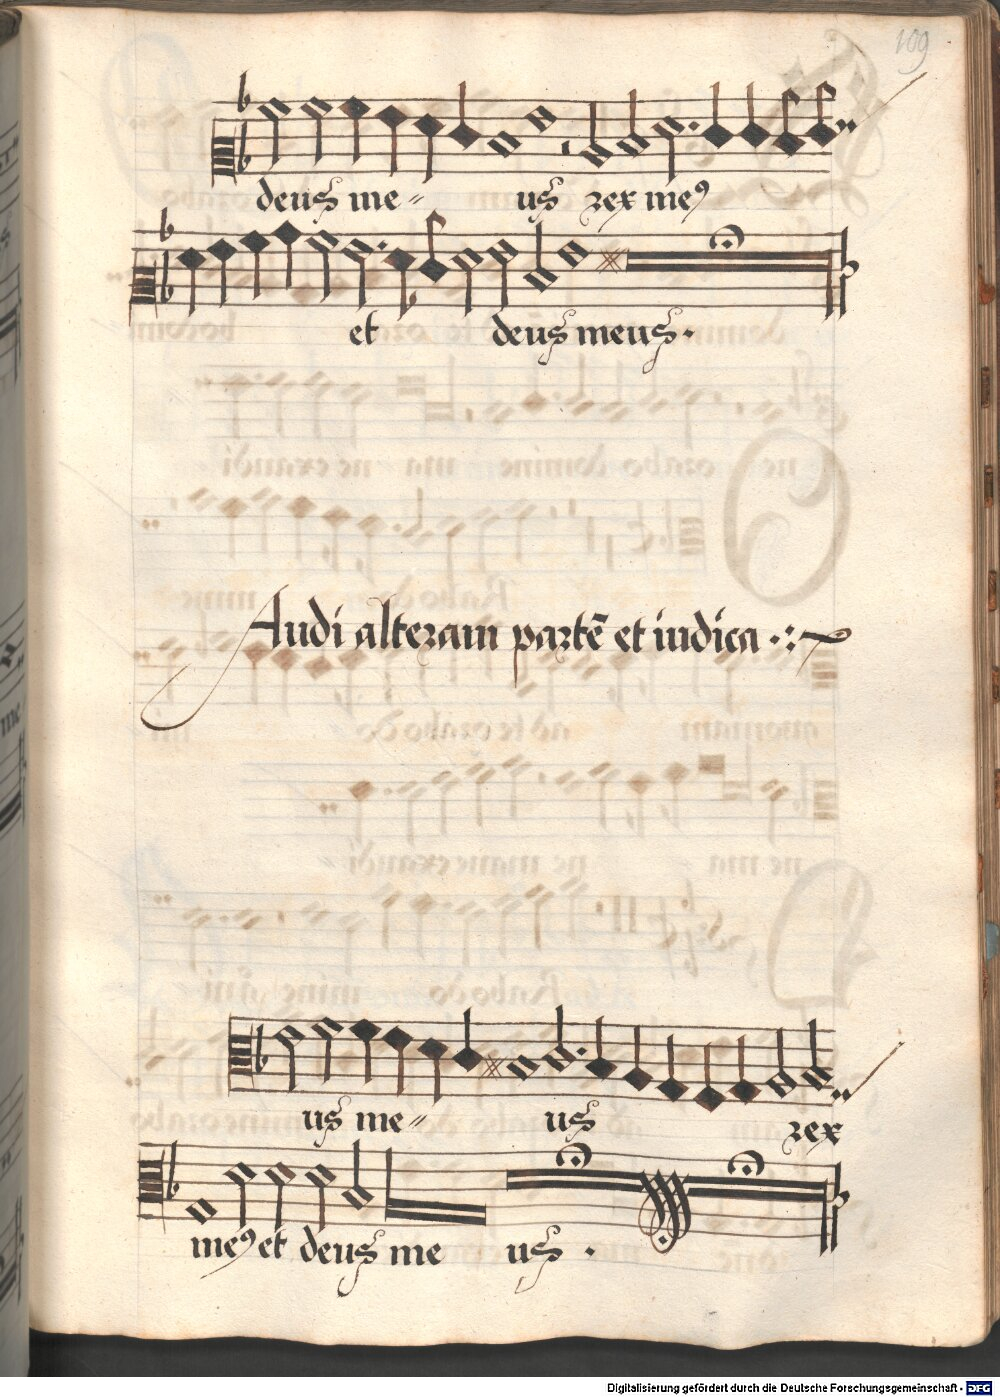 109
deus me us rex me9
et deus meus.
Audi alteram partē et iudica
us me us rex
me9 et deus me us.
Digitalisierung gefördert durch die Deutsche Forschungsgemeinschaft - DFG